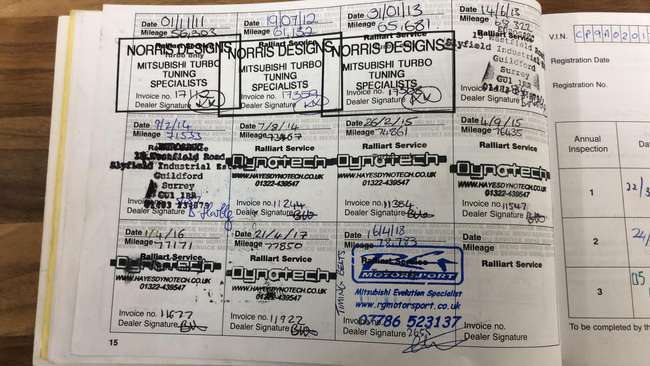 Date 01/11/11
Mileage 56,303
Ralliart Service
NORRIS DESIGNS
MITSUBISHI TURBO
TUNING
SPECIALISTS
Invoice no.
Dealer Signature
Date 19/07/12
Mileage 61,132
Ralliart Service
NORRIS DESIGNS
MITSUBISHI TURBO
TUNING
SPECIALISTS
Invoice no.
Dealer Signature
Date 31/01/13
Mileage 65,681
Ralliart Service
NORRIS DESIGNS
MITSUBISHI TURBO
TUNING
SPECIALISTS
Invoice no.
Dealer Signature
Date 14/6/13
Mileage
Westfield Road
Slyfield Industrial
Guildford
Surrey
GU1 1RR
Date 7/2/14
Mileage 71533
Westfield Road
Slyfield Industrial
Guildford
Surrey
GU1 1RR
Invoice no.
Dealer Signature
Date 7/8/14
Mileage
Ralliart Service
Dynotech
WWW.HAYESDYNOTECH.CO.UK
01322-439547
Invoice no. 11244
Dealer Signature
Date 26/2/15
Mileage 74861
Ralliart Service
Dynotech
WWW.HAYESDYNOTECH.CO.UK
01322-439547
Invoice no. 11384
Dealer Signature
Date 4/9/15
Mileage 76435
Ralliart Service
Dynotech
WWW.HAYESDYNOTECH.CO.UK
01322-439547
Invoice no. 11547
Dealer Signature
Date 1/4/16
Mileage 77171
Ralliart Service
Dynotech
WWW.HAYESDYNOTECH.CO.UK
01322-439547
Invoice no. 11677
Dealer Signature
Date 21/4/17
Mileage 77850
Ralliart Service
Dynotech
WWW.HAYESDYNOTECH.CO.UK
01322-439547
Invoice no. 11922
Dealer Signature
Date 16/4/18
Mileage 78,783
Ralliart Service
TIMING BELTS
MOTORSPORT
Mitsubishi Evolution Specialist
www.rgmotorsport.co.uk
07786 523137
Dealer Signature
Date
Mileage
Ralliart Service
Invoice no.
Dealer Signature
15
V.I.N.
Registration Date
Registration No.
Annual
Inspection
1
2
3
To be completed by the